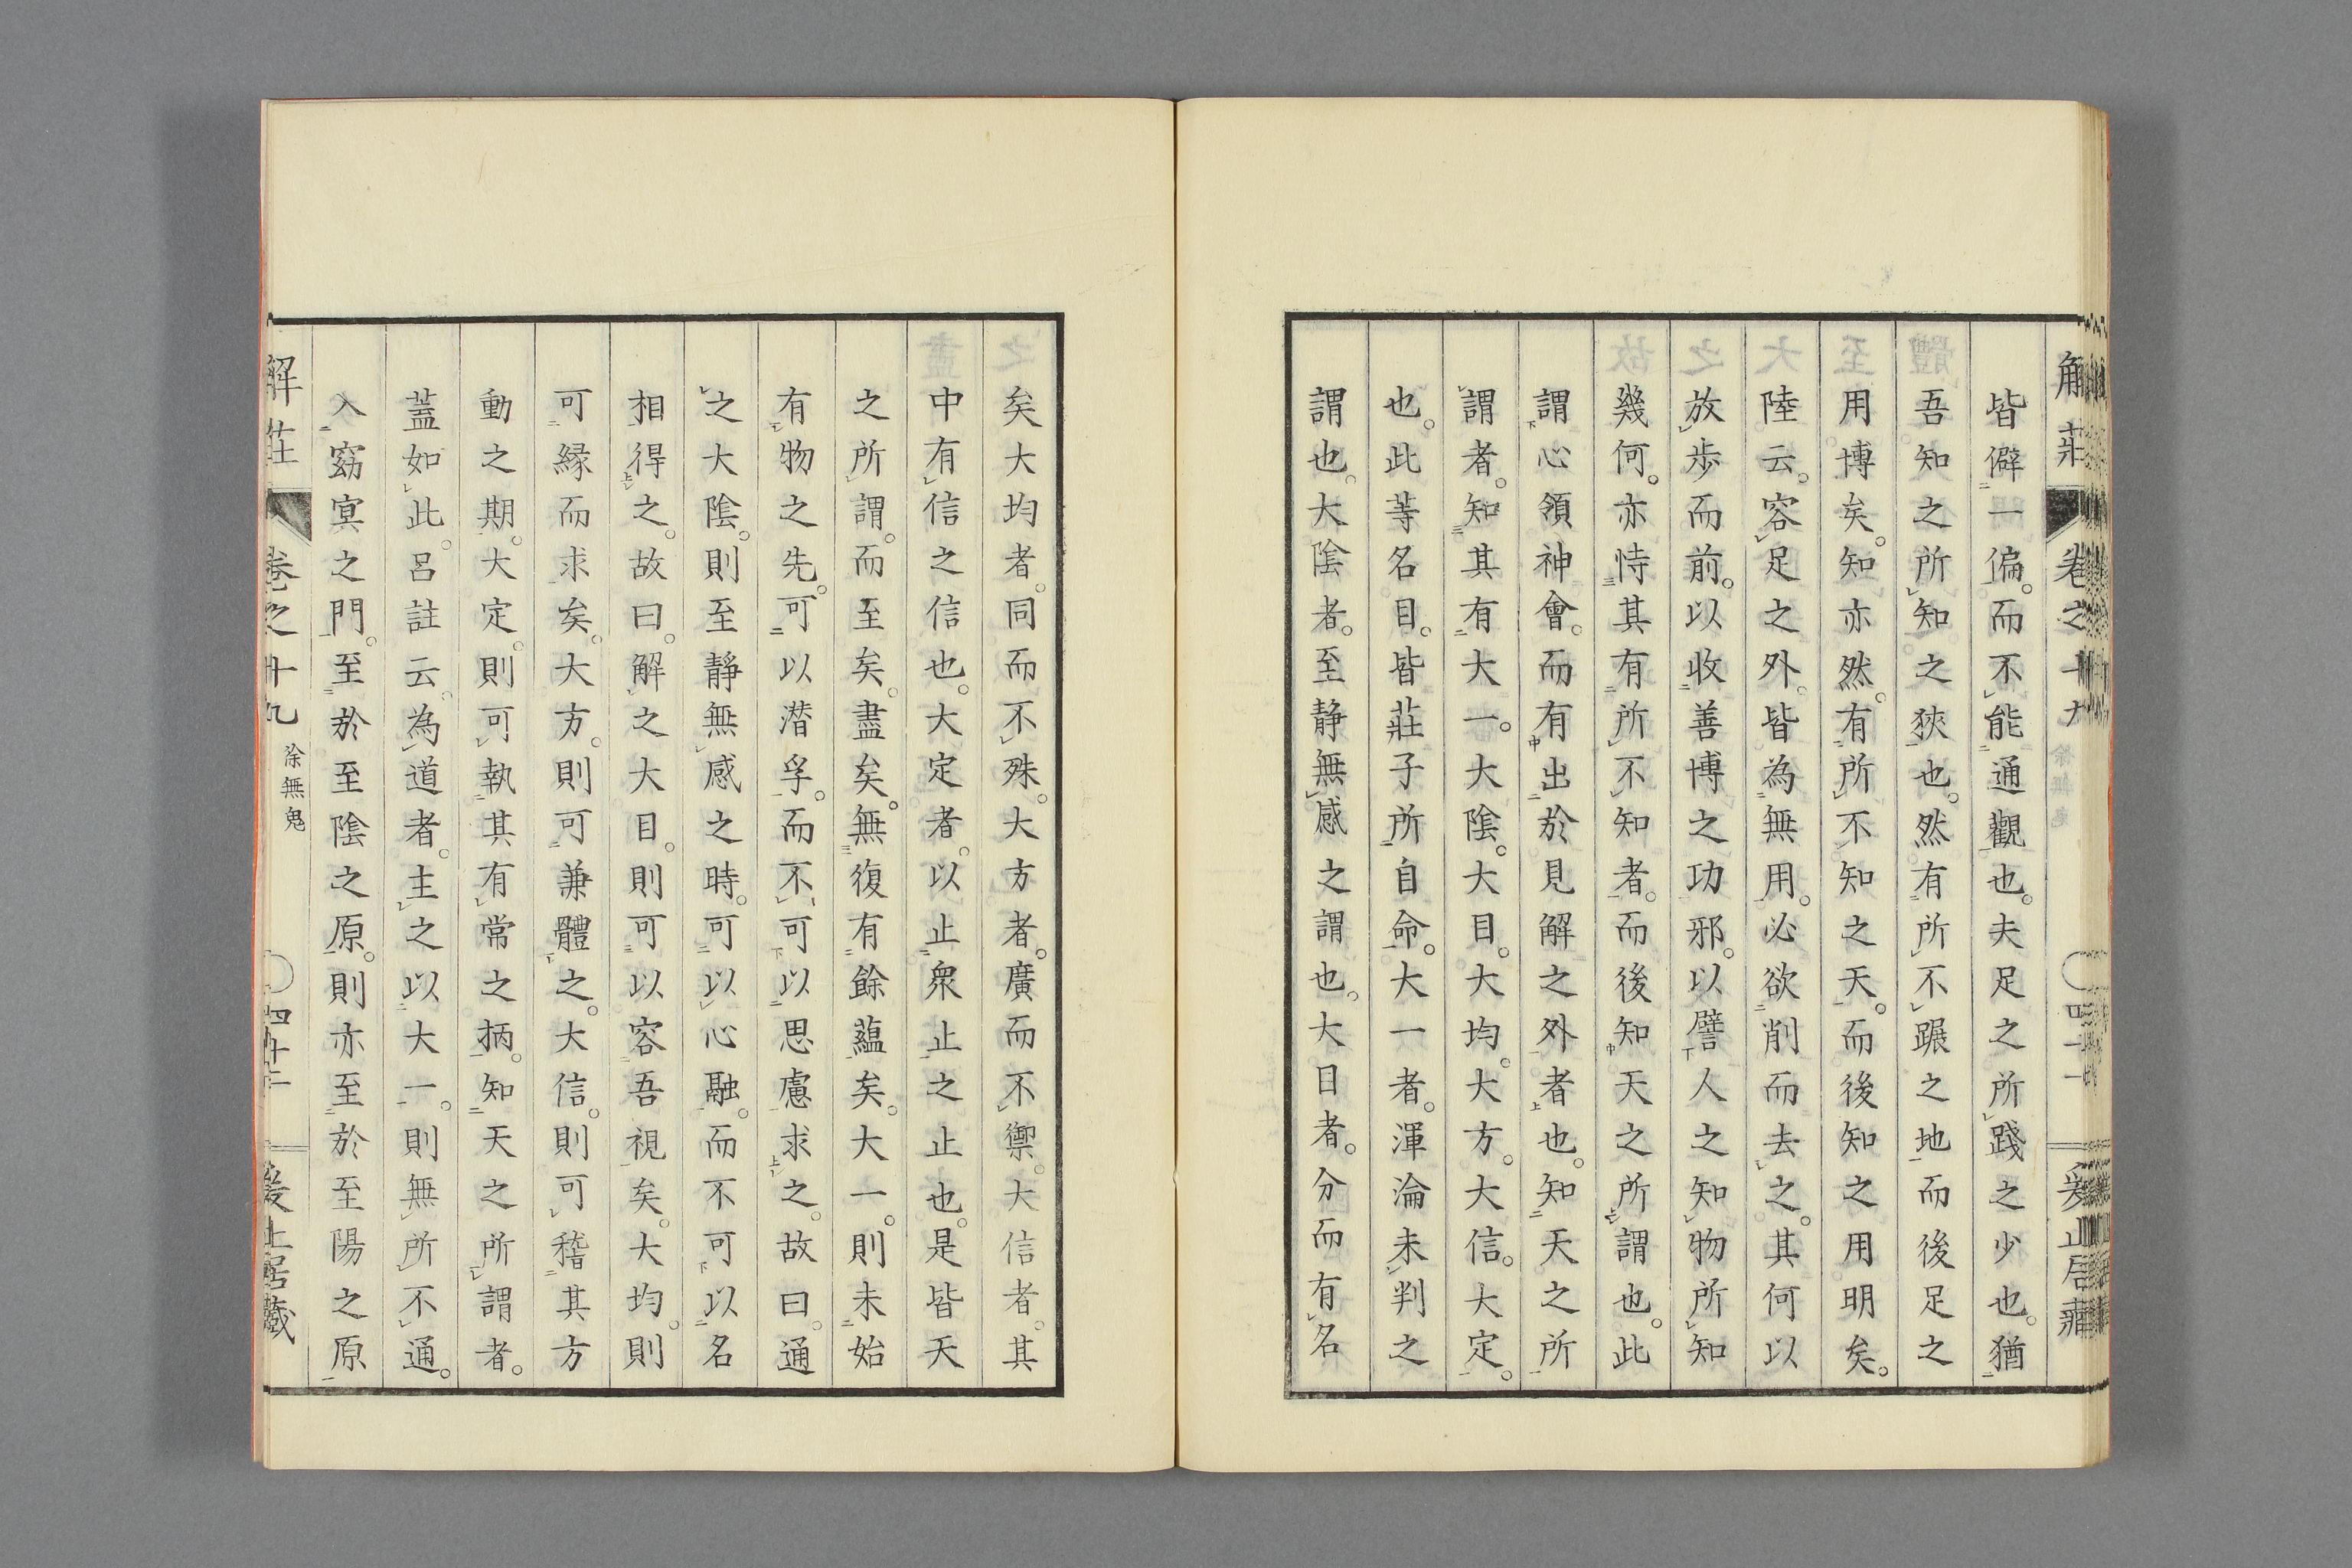 皆僻一偏。而不能通觀也。夫足之所踐之少也。猶
吾知之所知之狹也。然有所不蹍之地而後足之
用博矣。知亦然。有所不知之天。而後知之用明矣。
陸云。容足之外。皆為無用。必欲削而去之。其何以
放步而前。以收善博之功邪。以譬人之知物所知
幾何。亦恃其有所不知者。而後知天之所謂也。此
謂心領神會。而有出於見解之外者也。知天之所
謂者。知其有大一。大陰。大目。大均。大方。大信。大定。
也。此等名目。皆莊子所自命。大一者。渾淪未判之
謂也。大陰者。至靜無感之謂也。大目者。分而有名
矣大均者。同而不殊。大方者。廣而不禦。大信者。其
中有信之信也。大定者。以止衆止之止也。是皆天
之所謂。而至矣。盡矣。無復有餘蘊矣。大一。則未始
有物之先。可以潛孚。而不可以思慮求之。故曰。通
之大陰。則至靜無感之時。可以心融。而不可以名
相得之。故曰。解之大目。則可以容吾視矣。大均。則
可緣而求矣。大方。則可兼體之。大信。則可稽其方
動之期。大定。則可執其有常之柄。知天之所謂者。
蓋如此。呂註云。為道者。主之以大一。則無所不通。
入窈冥之門。至於至陰之原。則亦至於至陽之原
解莊
卷之十九
徐無鬼
四十二
爰止居藏